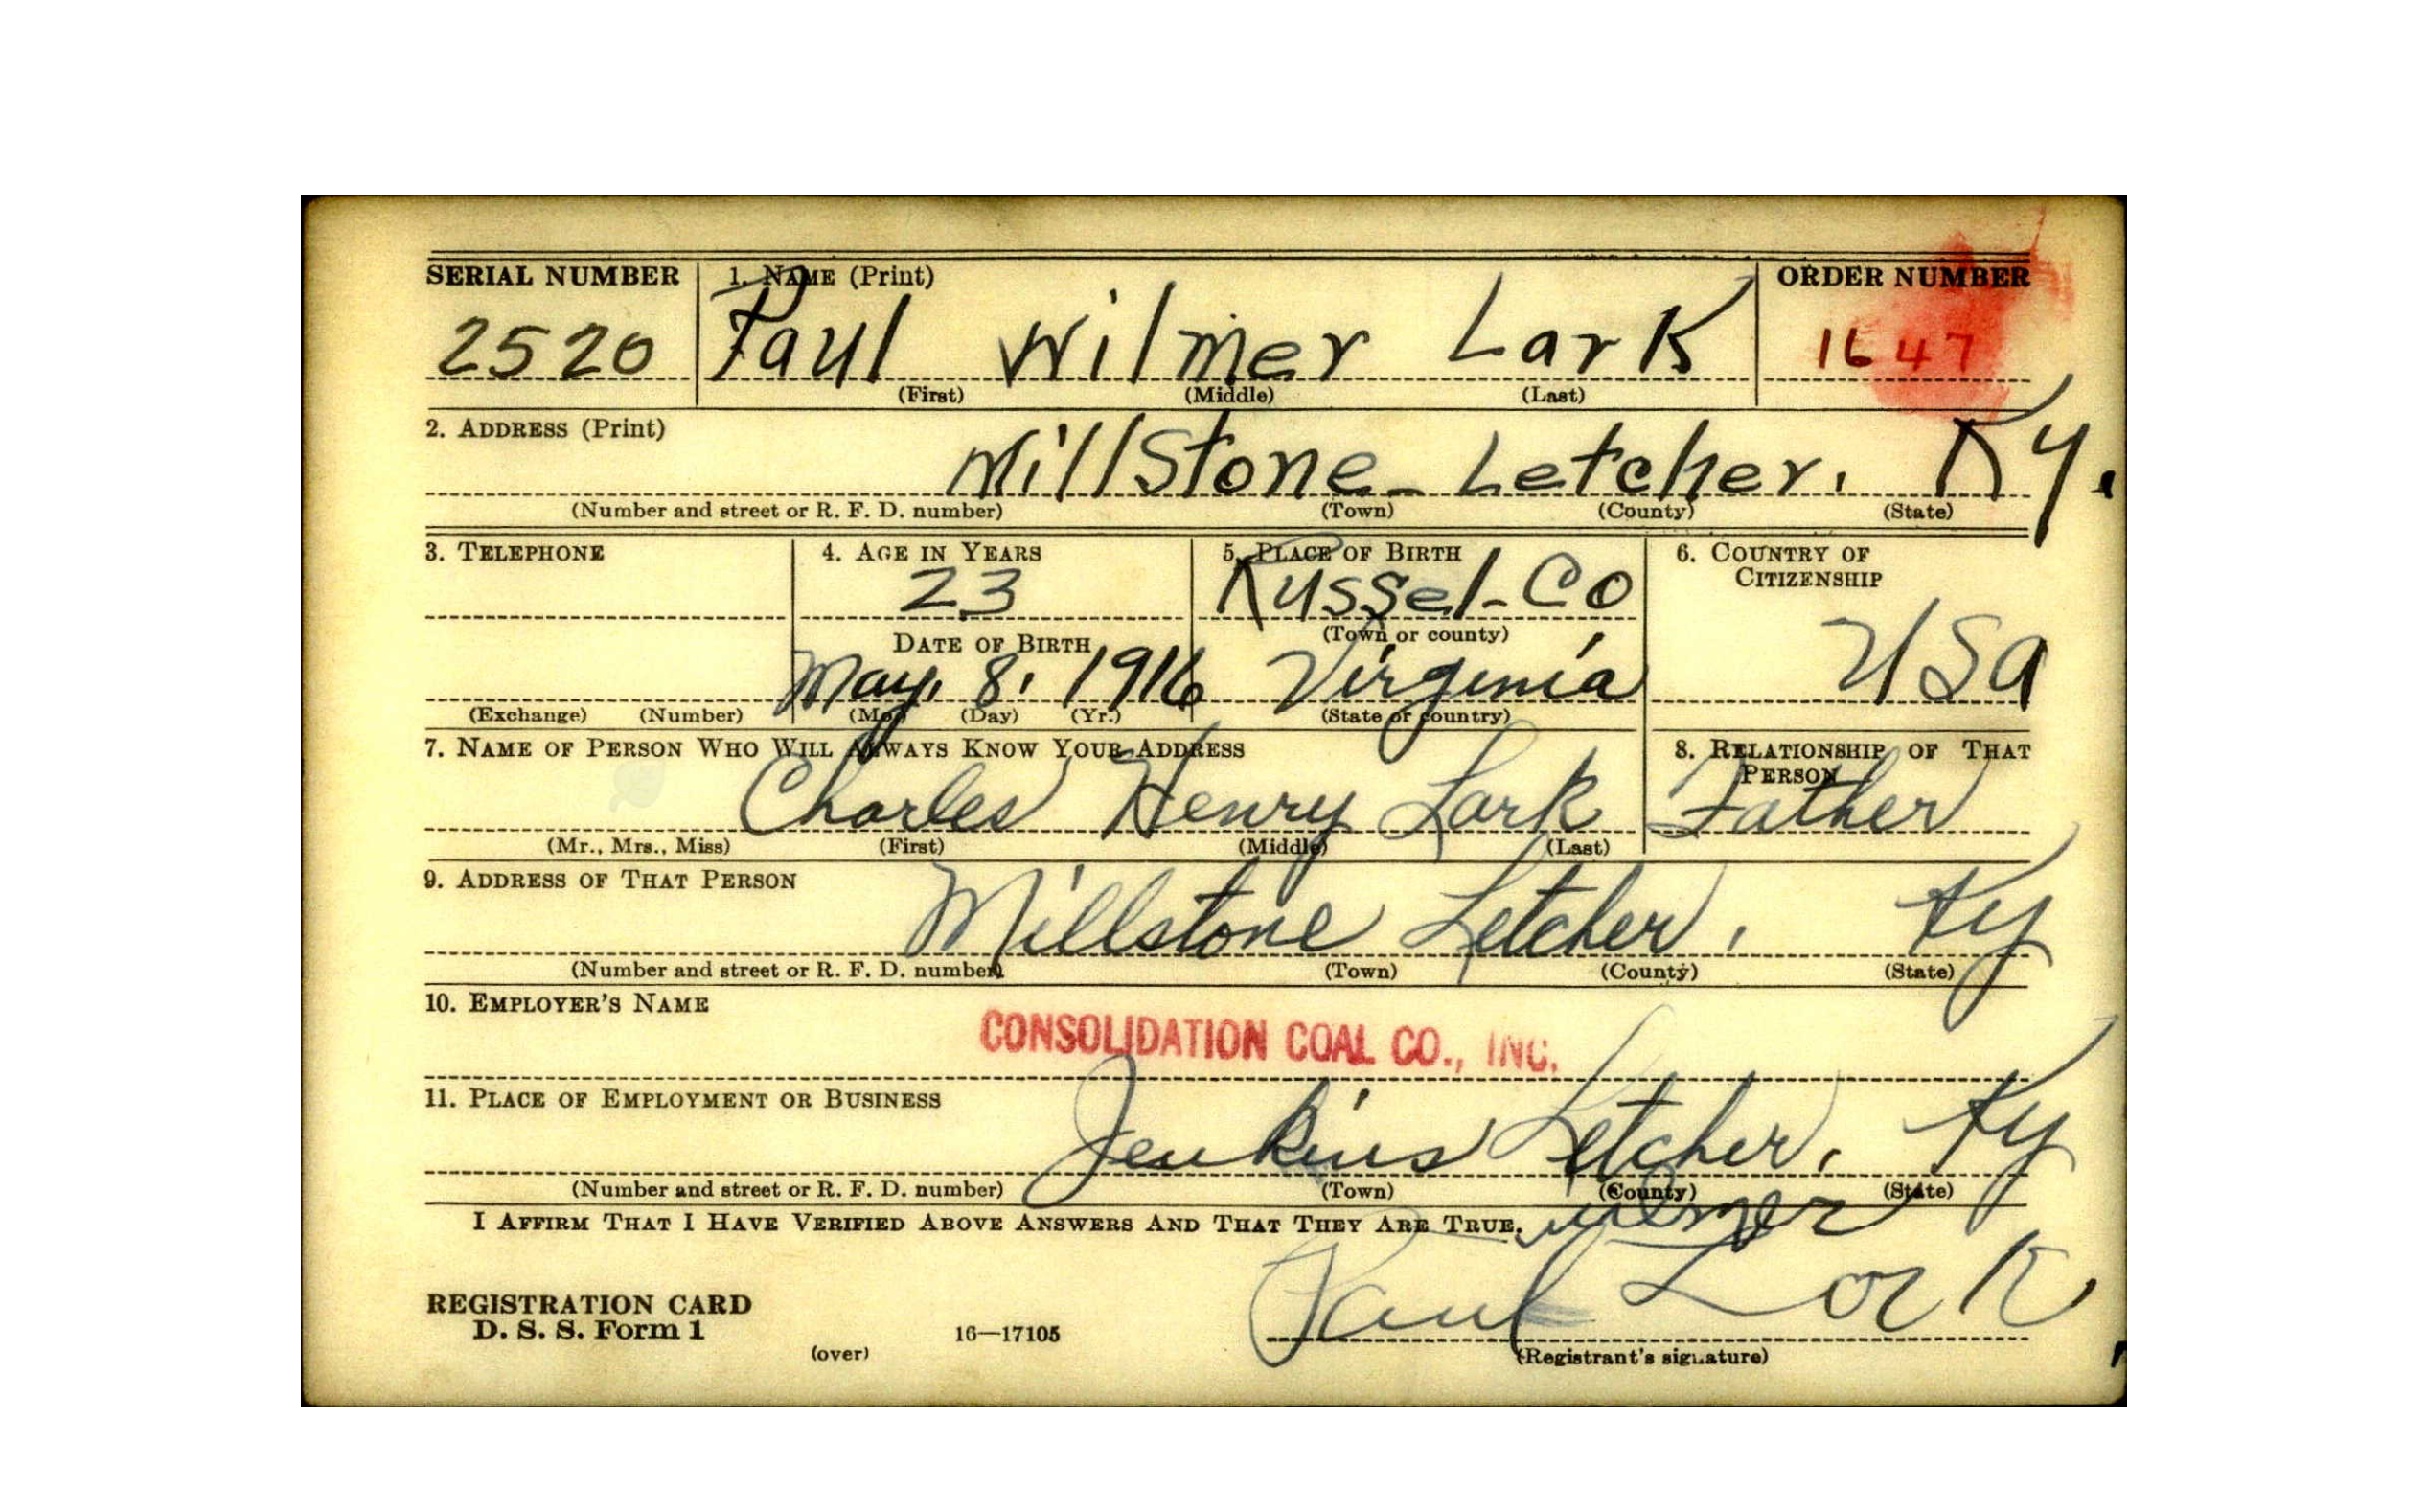 SERIAL NUMBER 1. NAME (Print) ORDER NUMBER
2520 Paul Wilmer Lark 1647
(First) (Middle) (Last)
2. ADDRESS (Print)
MillStone Letcher. Ky.
(Number and street or R. F. D. number) (Town) (County) (State)
3. TELEPHONE 4. AGE IN YEARS 5. PLACE OF BIRTH 6. COUNTRY OF
CITIZENSHIP
23 Russel-Co
DATE OF BIRTH (Town or county)
May. 8. 1916 Virginia USA
(Exchange) (Number) (Mo.) (Day) (Yr.) (State or country)
7. NAME OF PERSON WHO WILL ALWAYS KNOW YOUR ADDRESS 8. RELATIONSHIP OF THAT
PERSON
Charles Henry Lark Father
(Mr., Mrs., Miss) (First) (Middle) (Last)
9. ADDRESS OF THAT PERSON
Millstone Letcher, Ky
(Number and street or R. F. D. number) (Town) (County) (State)
10. EMPLOYER'S NAME
CONSOLIDATION COAL CO., INC.
11. PLACE OF EMPLOYMENT OR BUSINESS
Jenkins Letcher, Ky
(Number and street or R. F. D. number) (Town) (County) (State)
I AFFIRM THAT I HAVE VERIFIED ABOVE ANSWERS AND THAT THEY ARE TRUE.
wilmer
Paul Lark
REGISTRATION CARD
D. S. S. Form 1 16—17105
(over) (Registrant's signature)